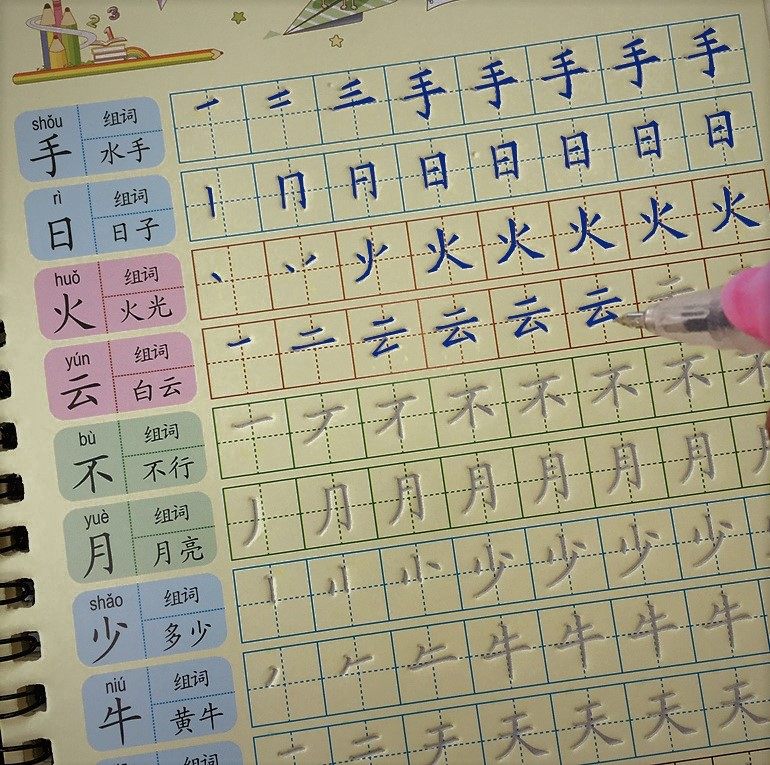 2 3
shǒu 组词
手 水手
一 二 三 手 手 手 手 手
rì 组词
日 日子
丨 冂 月 日 日 日 日 日
huǒ 组词
火 火光
丶 丷 火 火 火 火 火
yún 组词
云 白云
一 二 云 云 云 云
bù 组词
不 不行
一 丆 不 不 不 不
yuè 组词
月 月亮
丿 ⺆ 月 月 月 月 月
shǎo 组词
少 多少
丨 小 少 少 少 少
niú 组词
牛 黄牛
丿 𠂉 牛 牛 牛 牛
组词
一 二 天 天 天 天 天